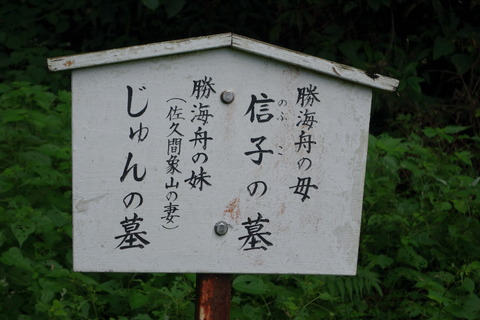 勝海舟の母
信子の墓
のぶこ
勝海舟の妹
(佐久間象山の妻)
じゅんの墓